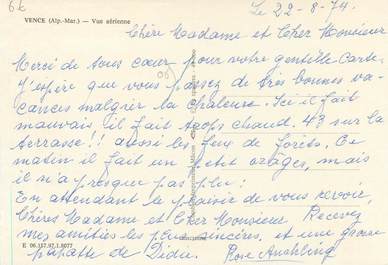 6k
VENCE (Alp.-Mar.) — Vue aérienne
Le 22-8-74.
Chère Madame et Cher Monsieur
Merci de tous cœur pour votre gentille Carte.
J'espère que vous passez de très bonnes va-
cances malgrier la chaleure. Ici il fait
mauvais, il fait trops chaud. 43 sur la
terrasse!! aussi les feux de forêts. Ce
matin il fait un petit orages, mais
il n'a presque pas plu!
En attendant le plaisir de vous revoir,
Chères Madame et Cher Monsieur Recevez
mes amitiés les plus sincères, et une grosse
papatte de Didu.
E 06.117.97.1.8077